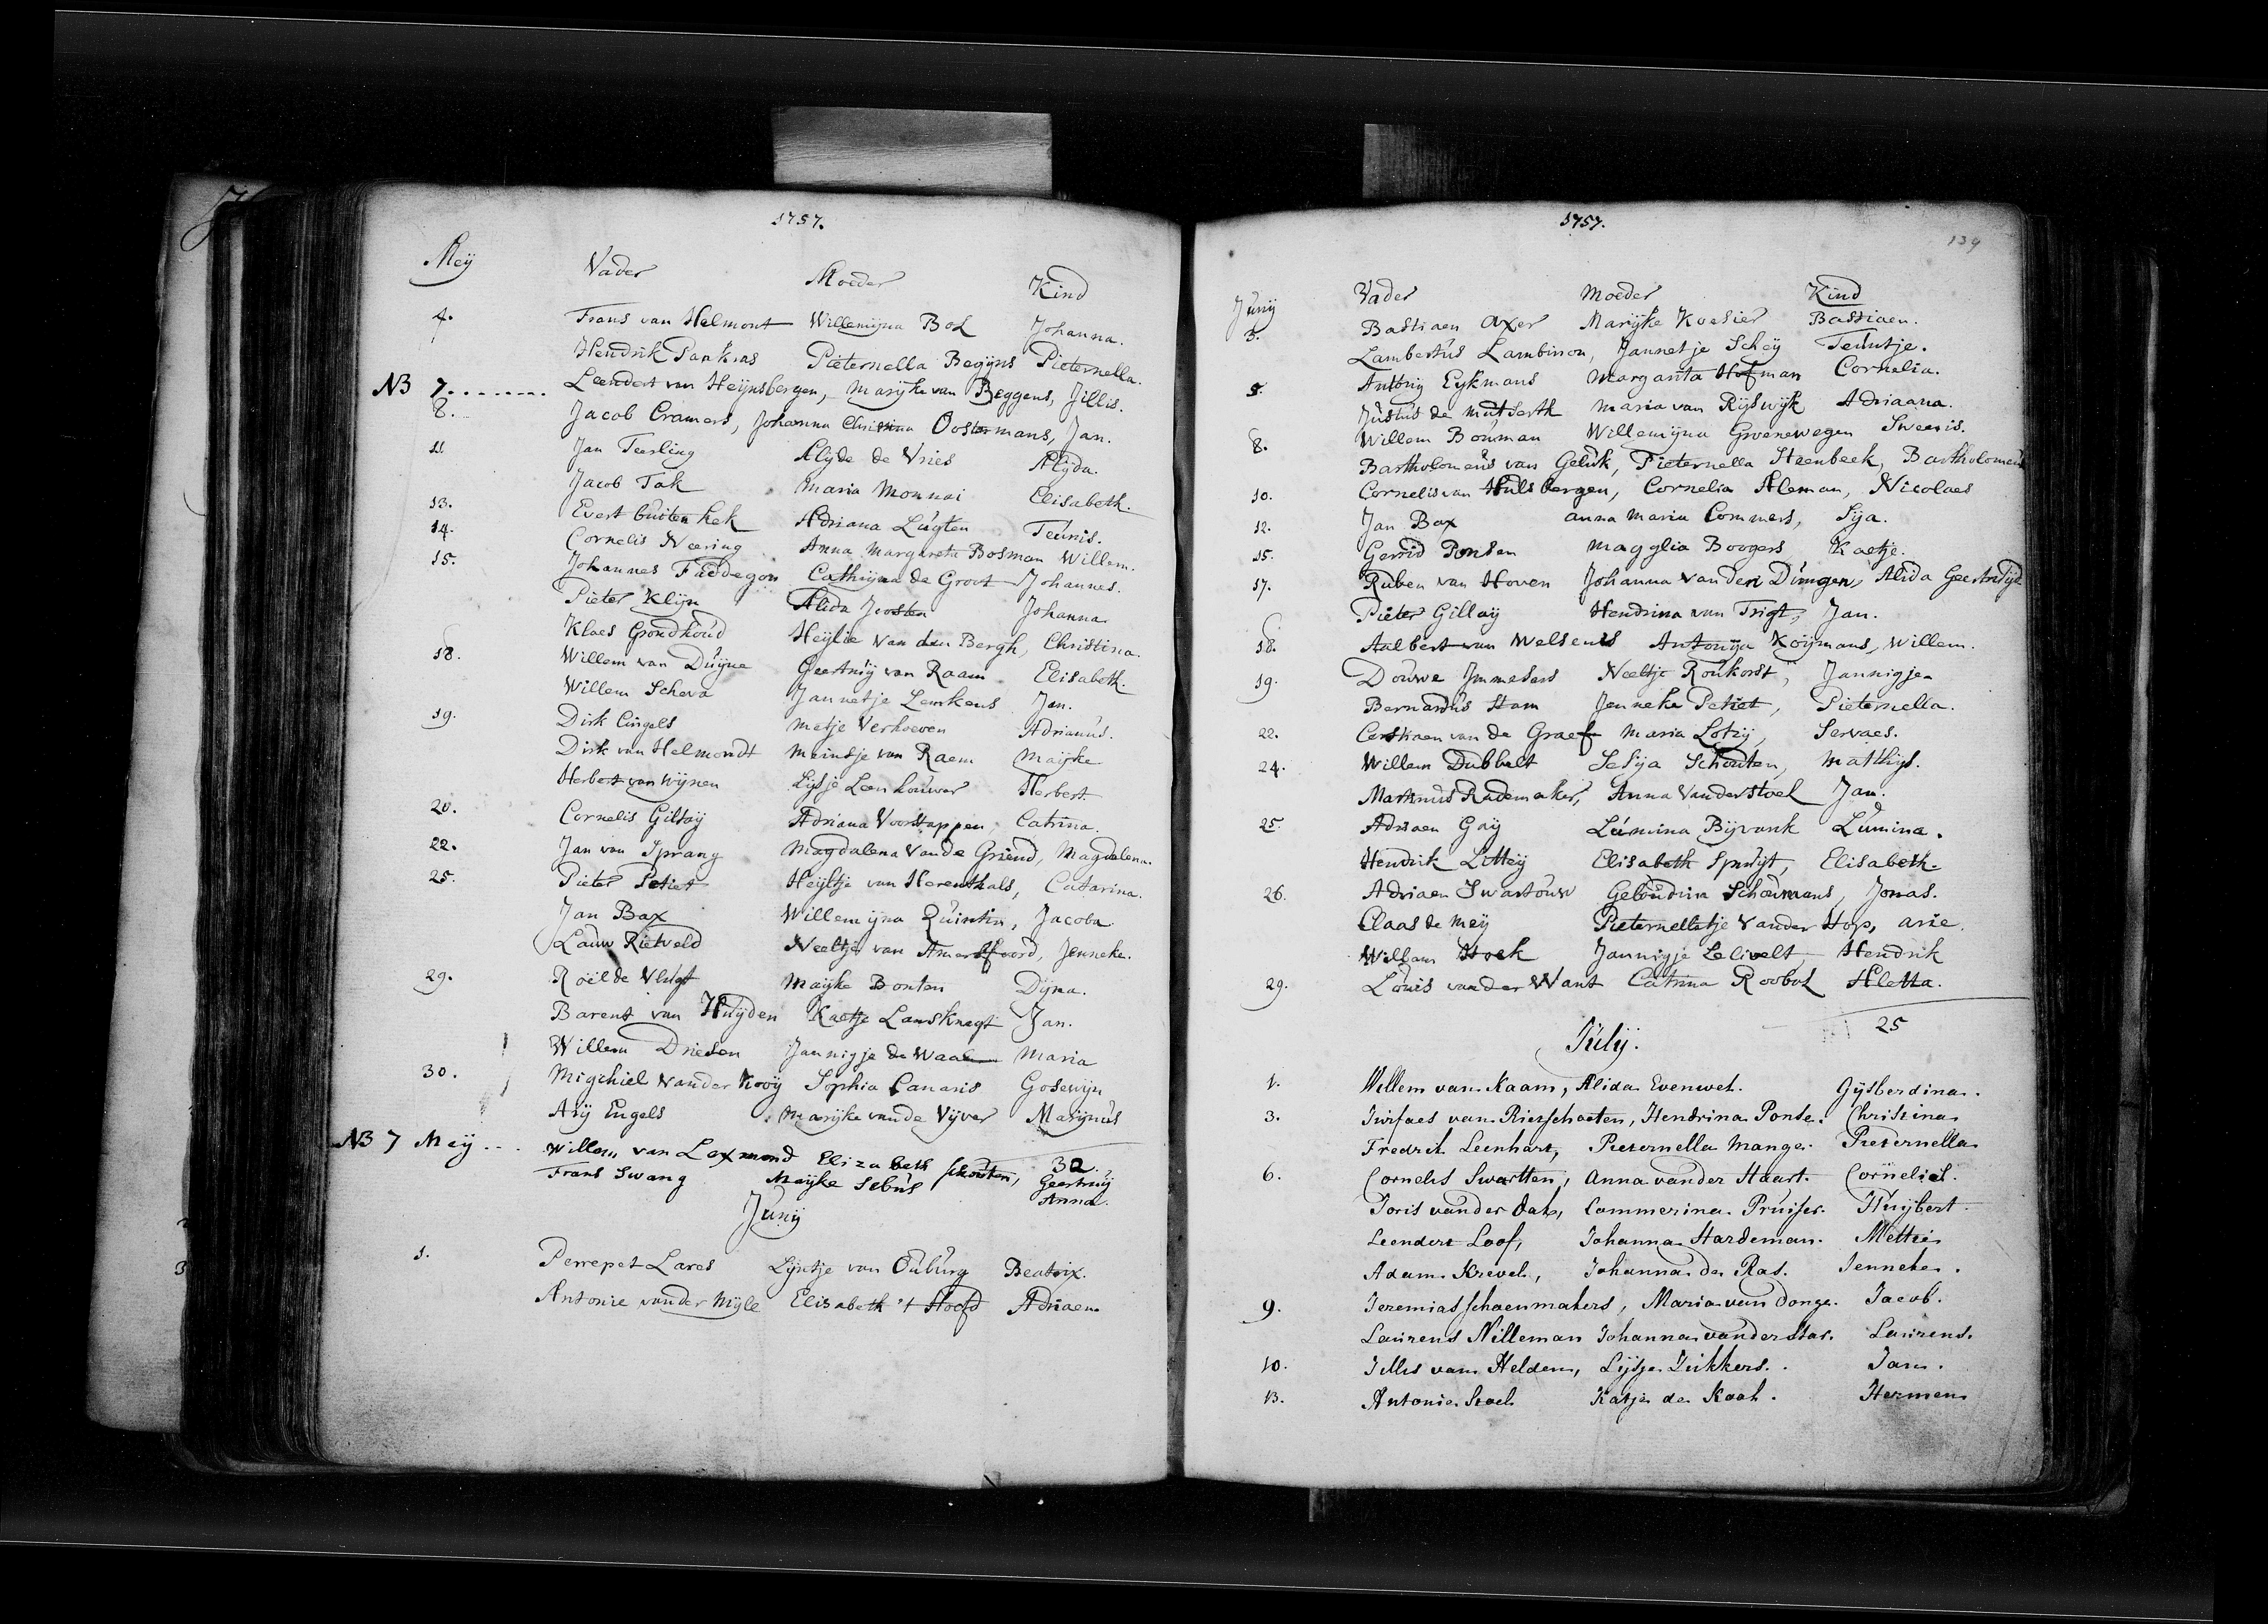 1757.
Meij
Vader Moeder Kind
4. Frans van Helmont Willemijna Bol Johanna.
Hendrik Pankras Pieternella Begijns Pieternella.
NB 7........ Leendert van Heijnsbergen, Marijke van Beggens, Jillis.
8. Jacob Cramers, Johanna Christina Oostermans, Jan.
11 Jan Teerling Alijde de Vries Alijda.
Jacob Tak Maria Monnai Elisabeth.
13. Evert buiten hek Adriana Lugten Teunis.
14. Cornelis Neering Anna Margareta Bosman Willem.
15. Johannes Faddegon Cathrijna de Groot Johannes.
Pieter Klijn Alida Joosten Johanna
Klaes Grondhoud Heijlie van den Bergh, Christina.
18. Willem van Duijne Geertruij van Raam Elisabeth.
Willem Scheva Jannetje Lemkens Jan.
19. Dirk Cingels Metje Verhoeven Adrianus.
Dirk van Helmondt Meinsje van Raem Maijke
Herbert van Wijnen Lijsje Leenhouwer Herbert.
20. Cornelis Giltaij Adriana Voorstappen, Catrina.
22. Jan van Sprang Magdalena van de Griend, Magdalena.
25. Pieter Petiet Heijltje van Herenthals, Catarina.
Jan Bax Willemijna Quintin, Jacoba
Lauw Rietveld Neeltje van Amersfoord, Jenneke.
29. Roel de Vlugt Maijke Bonten Dijna.
Barent van Huijden Kaetje Lansknegt Jan.
Willem Driesen Jannigje de Waal Maria
30. Migchiel van der Kooij Sophia Canaris Gosewijn
Arij Engels Marijke van de Vijver Marijnus
32.
NB 7 Meij... Willem van Lexmond Elizabeth Schouten, Geertruij
Frans Swang Maijke Sebus Anna.
Junij
1. Perrepet Lares Lijntje van Ouburg Beatrix.
Antonie van der Mijle Elisabeth 't Hoofd Adriaen
1757.
139
Junij Vader Moeder Kind
3. Bastiaen Axer Marijke Koesier Bastiaen.
Lambertus Lambinon, Jannetje Scheij Teuntje.
5. Anthoij Eijkmans Margarita Hofman Cornelia.
Justus de Mutserth Maria van Rijswijk Adriaana.
8. Willem Bouman Willemijna Groenewegen Sweeris.
Bartholomeus van Geluk, Pieternella Steenbeek, Bartholomeus
10. Cornelis van Hulsbergen, Cornelia Aleman, Nicolaes
12. Jan Bax Anna Maria Commers, Sija.
15. Gerrid Ponsen Magglia Boogers Kaetje.
17. Ruben van Hoven Johanna van den Dungen, Alida Geertruijd
Pieter Gillaij Hendrina van Trigt, Jan.
18. Aalbert van Welsenis Antonija Koijmans, Willem.
19. Douwe Jmmesers Neeltje Ronkorst, Jannigje
Bernardus Stam Jenneke Petiet, Pieternella.
22. Cerstiaen van de Graef Maria Lotzij, Servaes.
24. Willem Dubbelt Sesija Schouten, Matthijs.
Martinus Rademaker, Anna van der Stoel Jan.
25. Adriaen Gaij Lumina Bijvank Lumina.
Hendrik Litteij Elisabeth Spruijt, Elisabeth.
26. Adriaen Swartouw Geloudina Schoermans, Jonas.
Claas de Meij Pieternelletje van der Hop, Arie.
Willem Hoek Jannigje Lelivelt, Hendrik
29. Louis van der Want Catrina Roobol Aletta.
25
Julij.
1. Willem van Kaam, Alida Evenwel. Gijsberdina.
3. Jurfaes van Rieschoeten, Hendrina Ponse. Christina
Fredrik Leenhart, Pieternella Mange. Pieternella
6. Cornelis Swartten, Anna van der Staart. Cornelis.
Joris van der dat, Commerina Pruijser. Huijbert.
Leendert Loof, Johanna Hardeman. Mettie
Adam Krevel, Johanna de Ras. Jenneke.
9. Jeremias Schoenmakers, Maria van Donge. Jacob.
Laurens Nilleman Johanna van der Star. Laurens.
10. Jillis van Helden, Lijsje Dikkers. Jan.
13. Antonie Stoel Katje de Kaal. Hermen